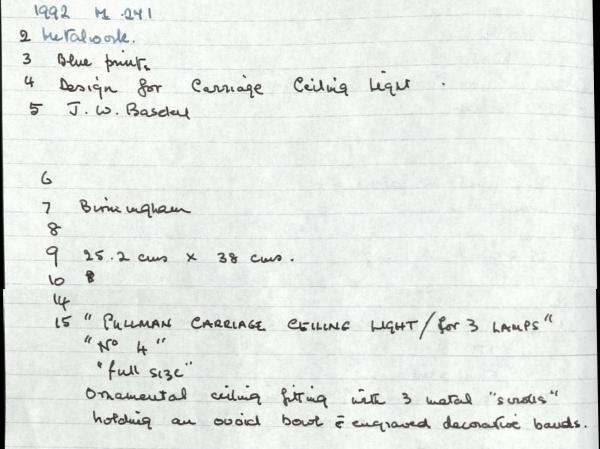 1992 M 241
2 Metalwork.
3 Blue print.
4 Design for Carriage Ceiling Light.
5 J. W. Basdel
6
7 Birmingham
8
9 25.2 cms x 38 cms.
10 8
14
15 "PULLMAN CARRIAGE CEILING LIGHT/for 3 LAMPS"
"No 4"
"full SIZE"
Ornamental ceiling fitting with 3 metal "scrolls"
holding an ovoid bowl c̄ engraved decorative bands.